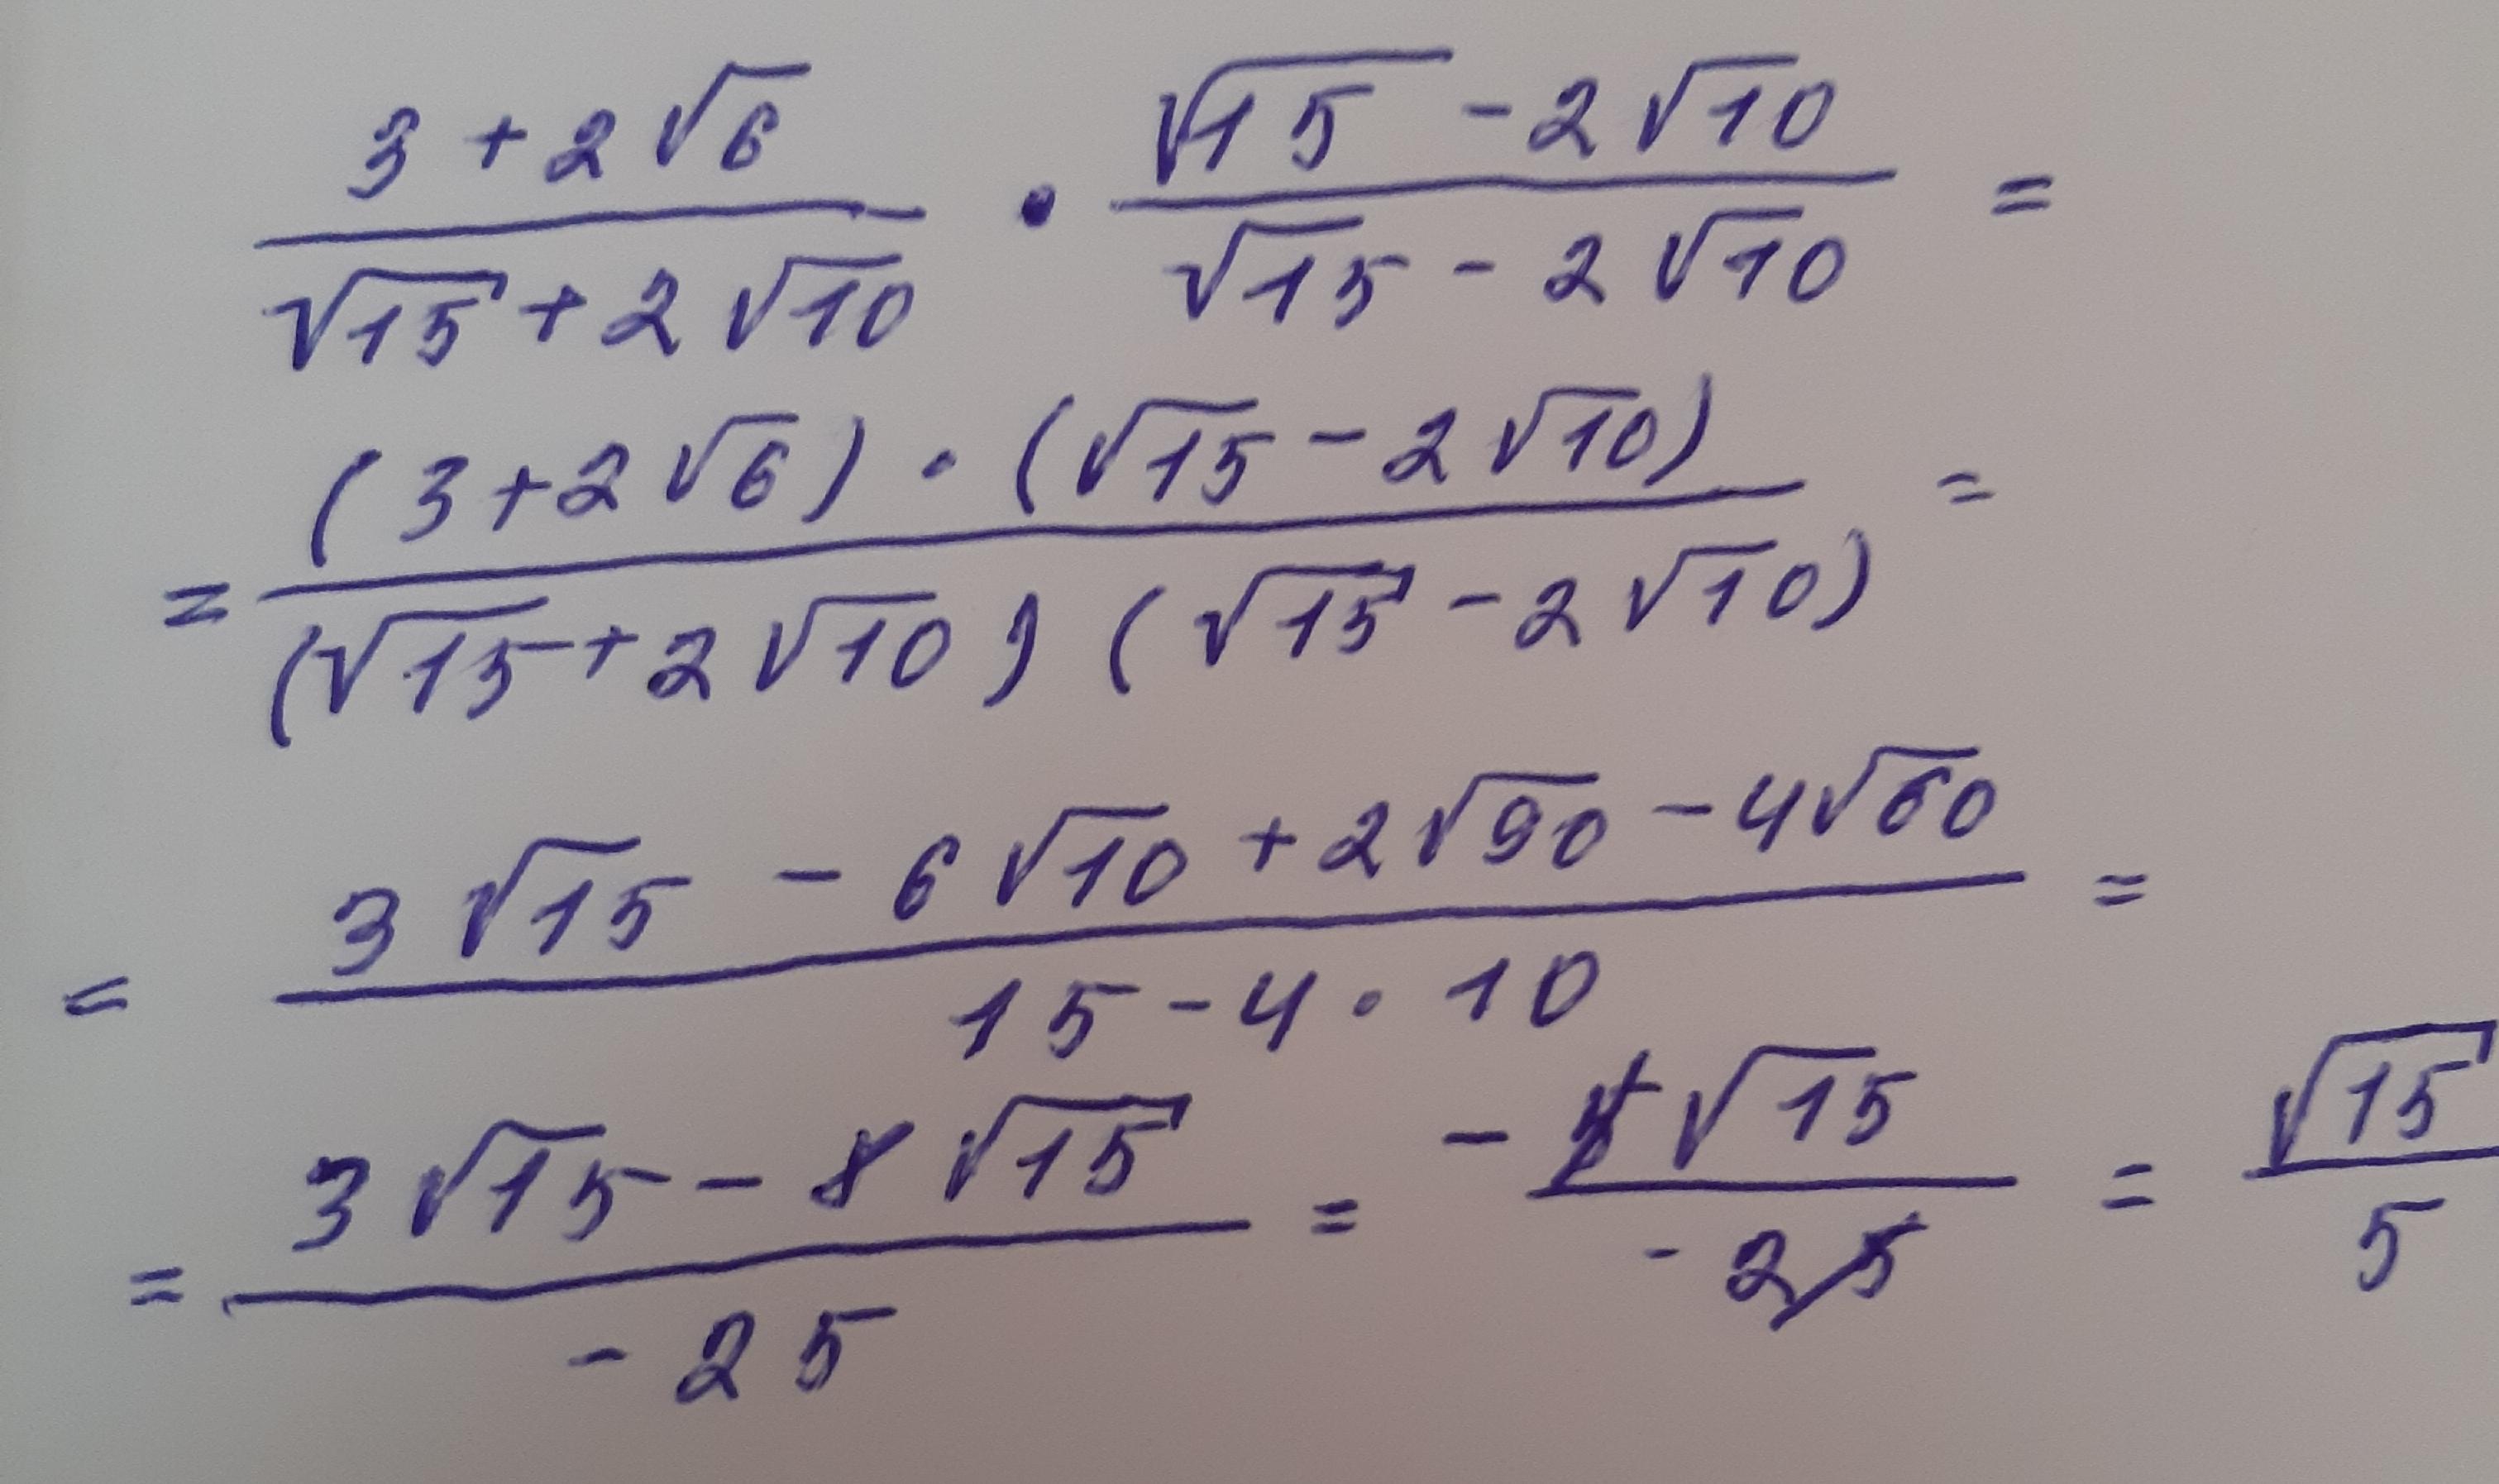 (3 + 2√6)/(√15 + 2√10) · (√15 - 2√10)/(√15 - 2√10) =
= ((3 + 2√6) · (√15 - 2√10))/((√15 + 2√10) (√15 - 2√10)) =
= (3√15 - 6√10 + 2√90 - 4√60)/(15 - 4 · 10) =
= (3√15 - 8√15)/(-25) = (-5√15)/(-25) = √15/5